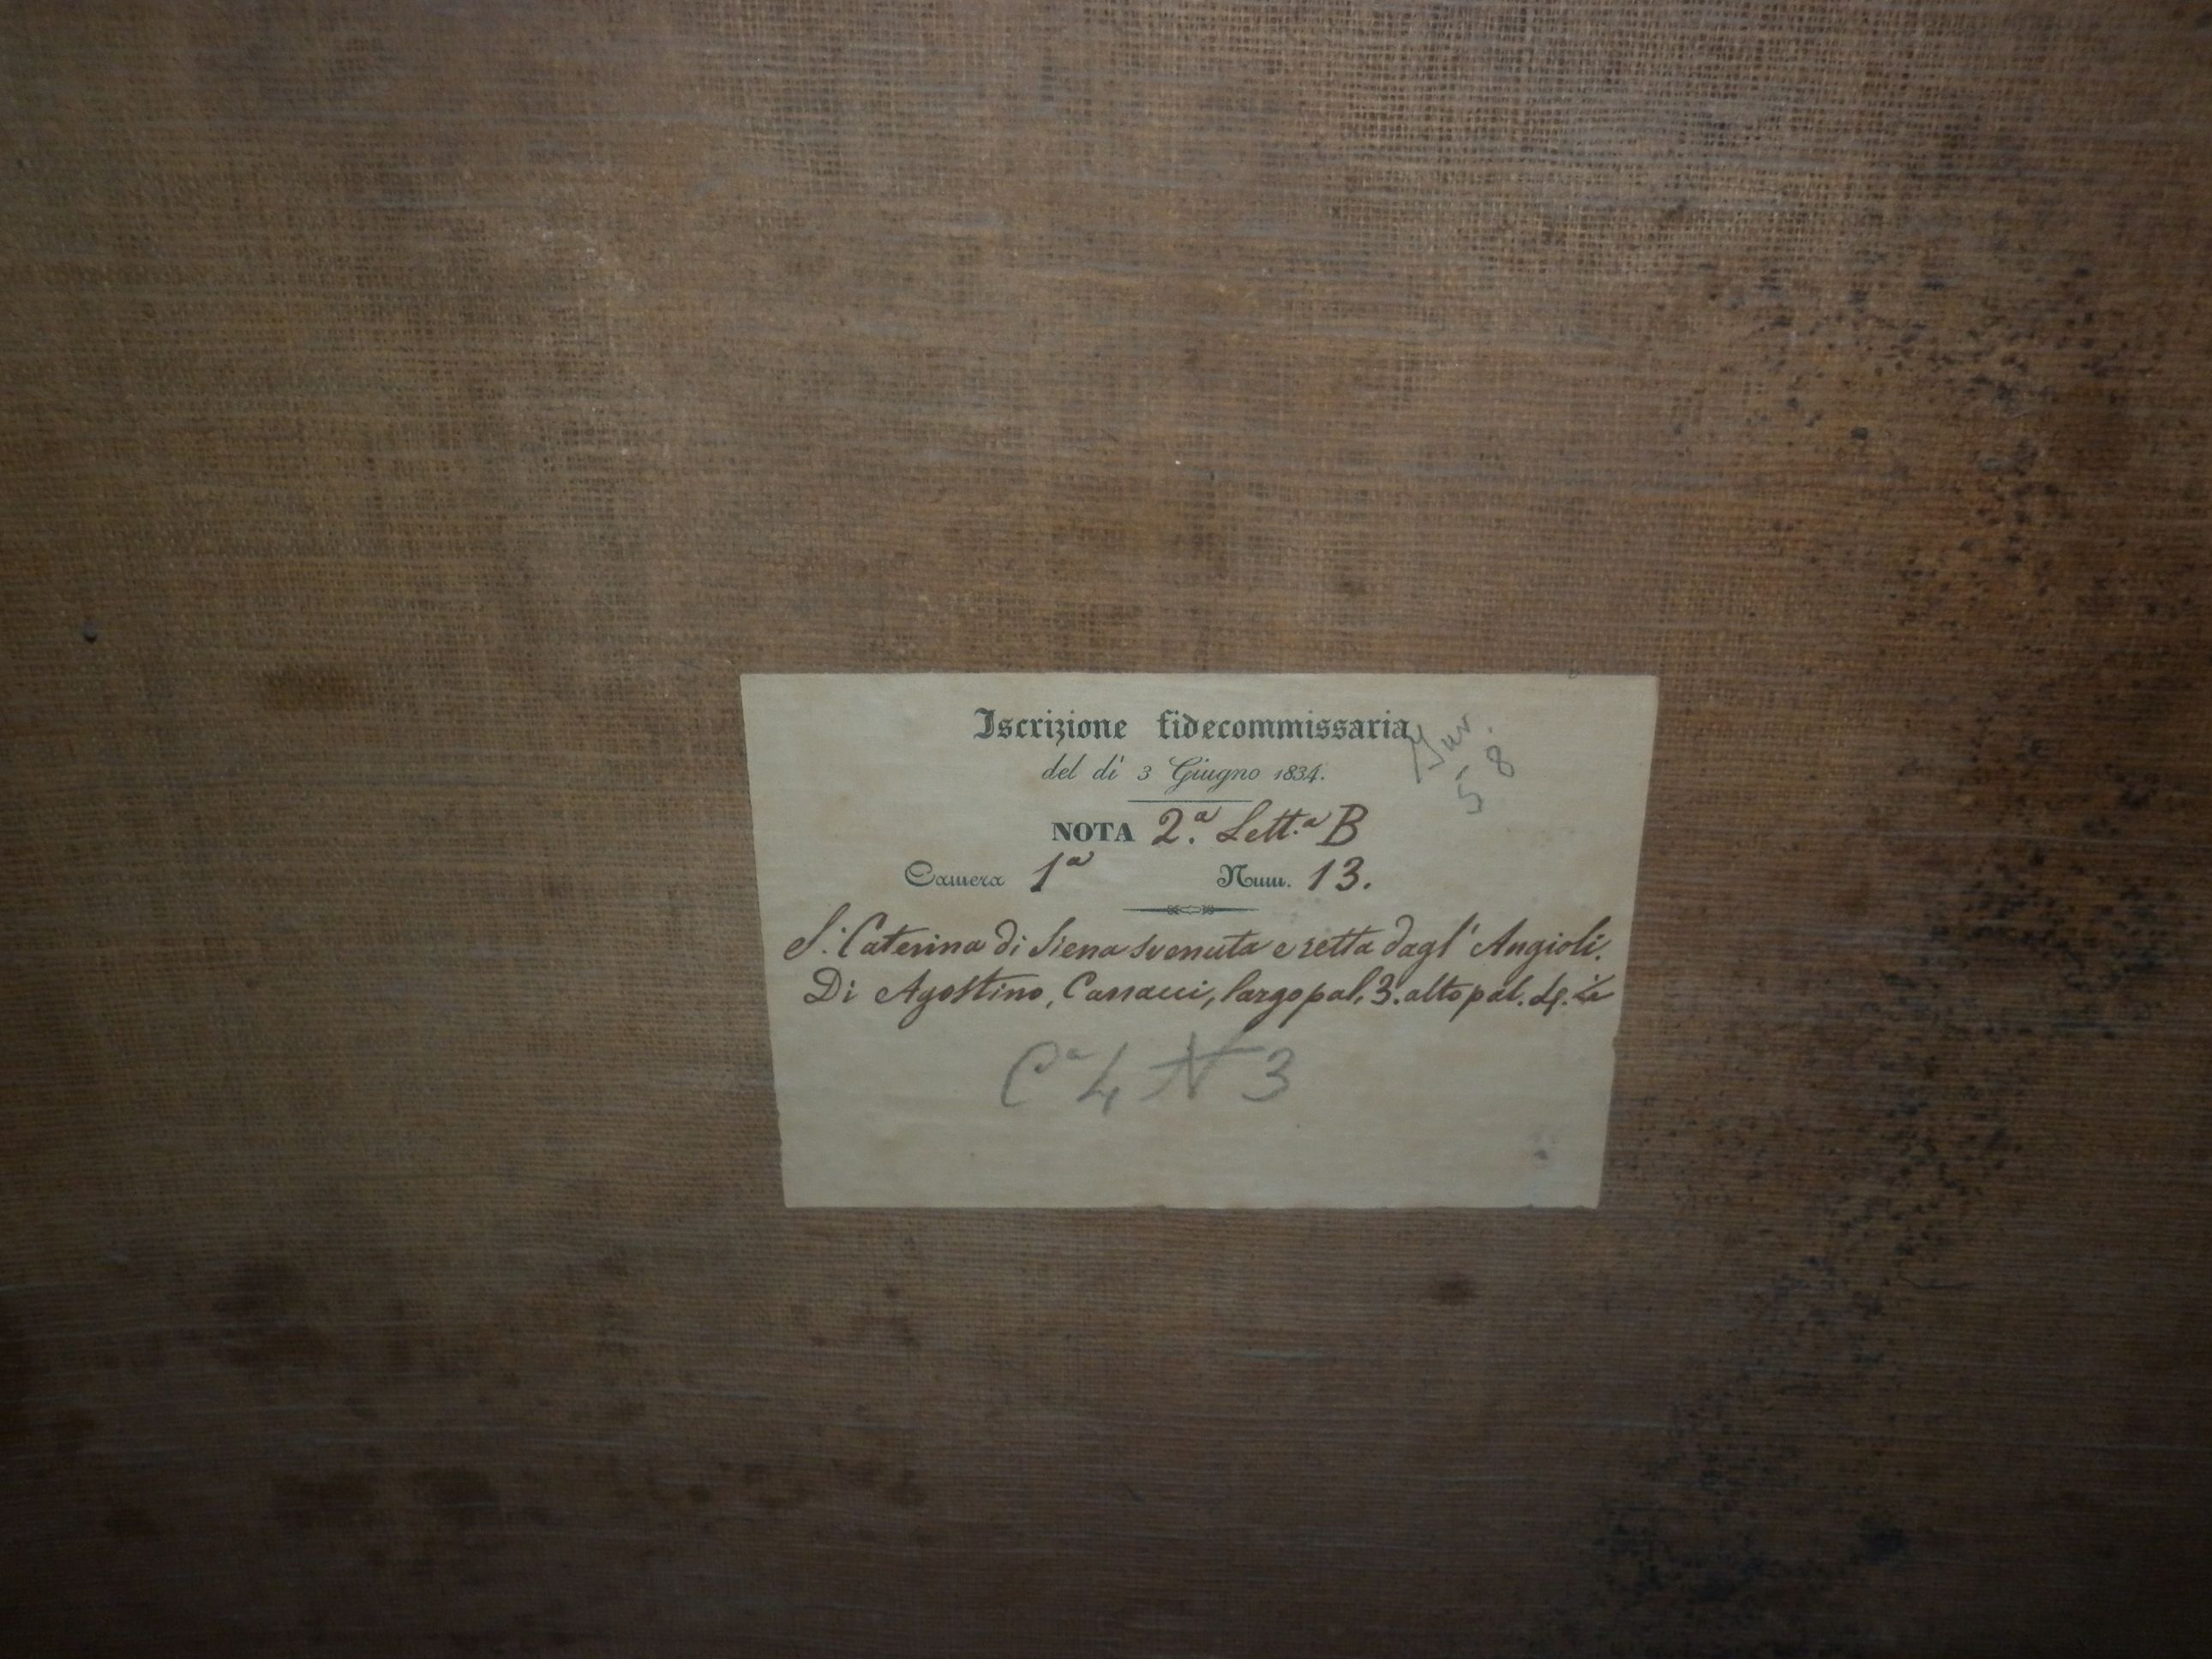 Iscrizione fidecommissaria
del dì 3 Giugno 1834.
Inv.
58
NOTA 2.ª Lett.ª B
Camera 1ª Num. 13.
S. Caterina di Siena svenuta e retta dagl' Angioli.
Di Agostino, Carracci, largo pal, 3. alto pal.
Cª 4 N 3